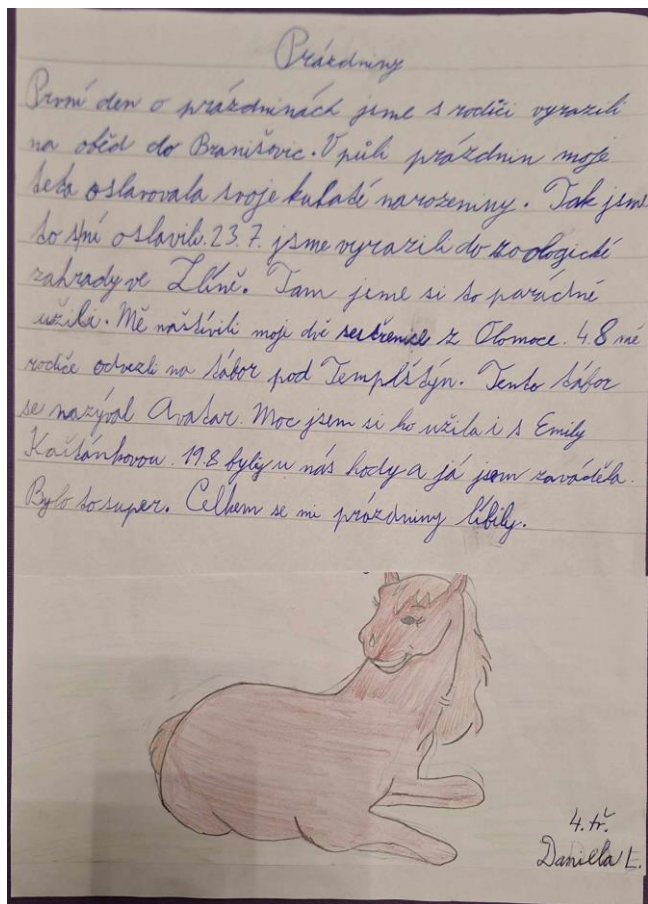 Prázdniny
První den o prázdninách jsme s rodiči vyrazili
na oběd do Branišovic. V půli prázdnin moje
teta oslavovala svoje kulaté narozeniny. Tak jsme
to s ní oslavili. 23.7. jsme vyrazili do zoologické
zahrady ve Zlíně. Tam jsme si to parádně
užili. Mě naštívili moji dvě sestřenice z Olomoce. 4.8 mě
rodiče odvezli na tábor pod Templštýn. Tento tábor
se nazýval Avatar. Moc jsem si ho užila i s Emily
Kaštánkovou. 19.8 byly u nás hody a já jsem zaváděla.
Bylo to super. Celkem se mi prázdniny líbily.
4. tř.
Daniella L.